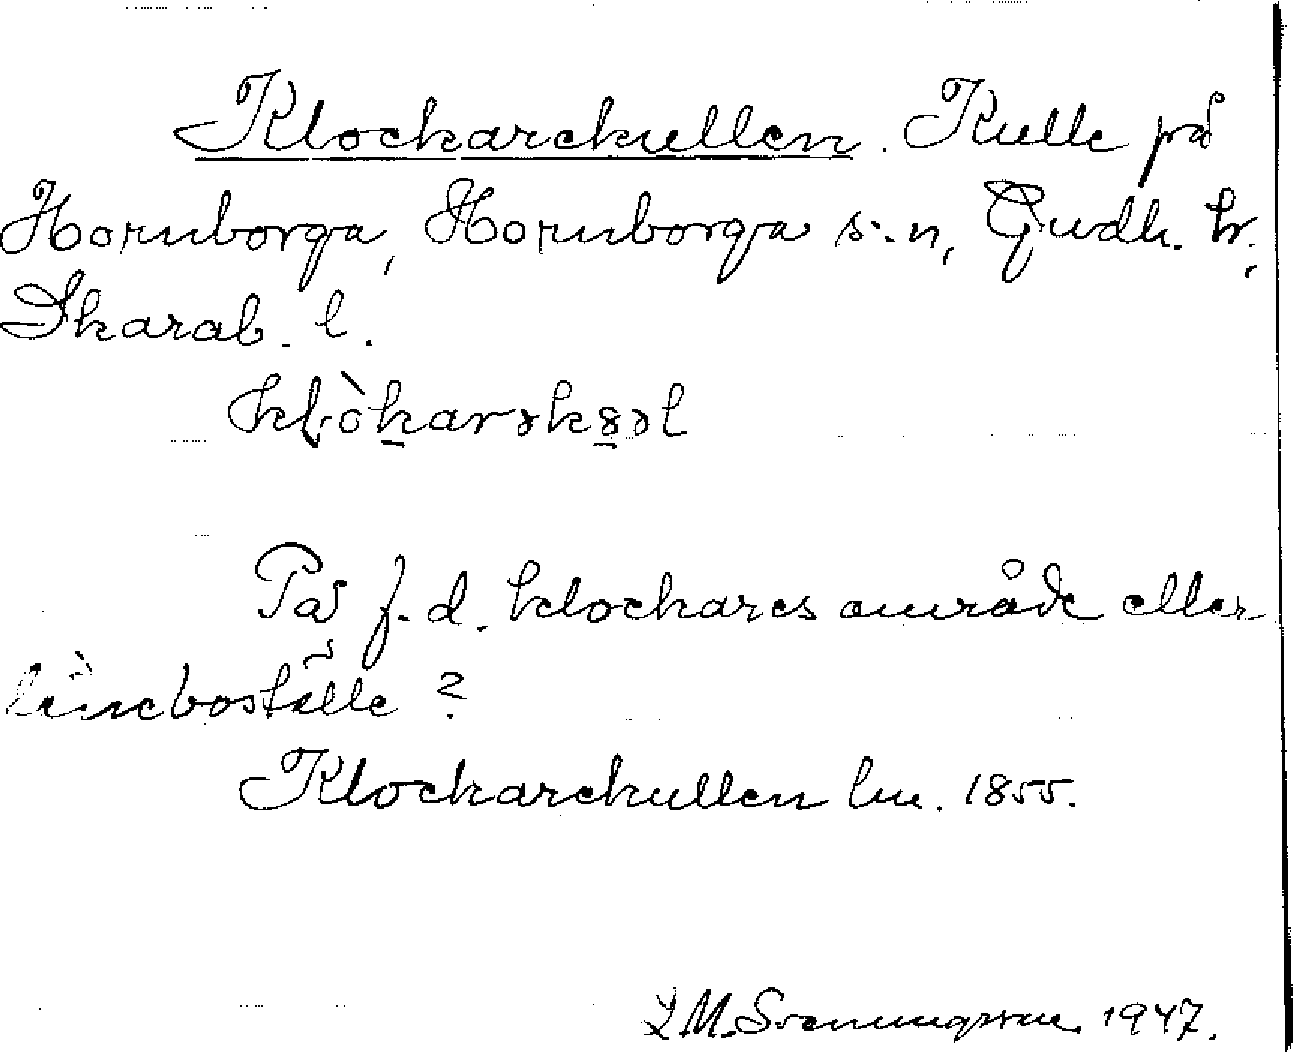 Klockarekullen. Kulle på
Hornborga, Hornborga s:n, Gudh. hr.,
Skarab. l.
På f.d. klockares område eller
läneboställe?
Klockarekullen lm. 1855.
L M. Svenungsson 1947.